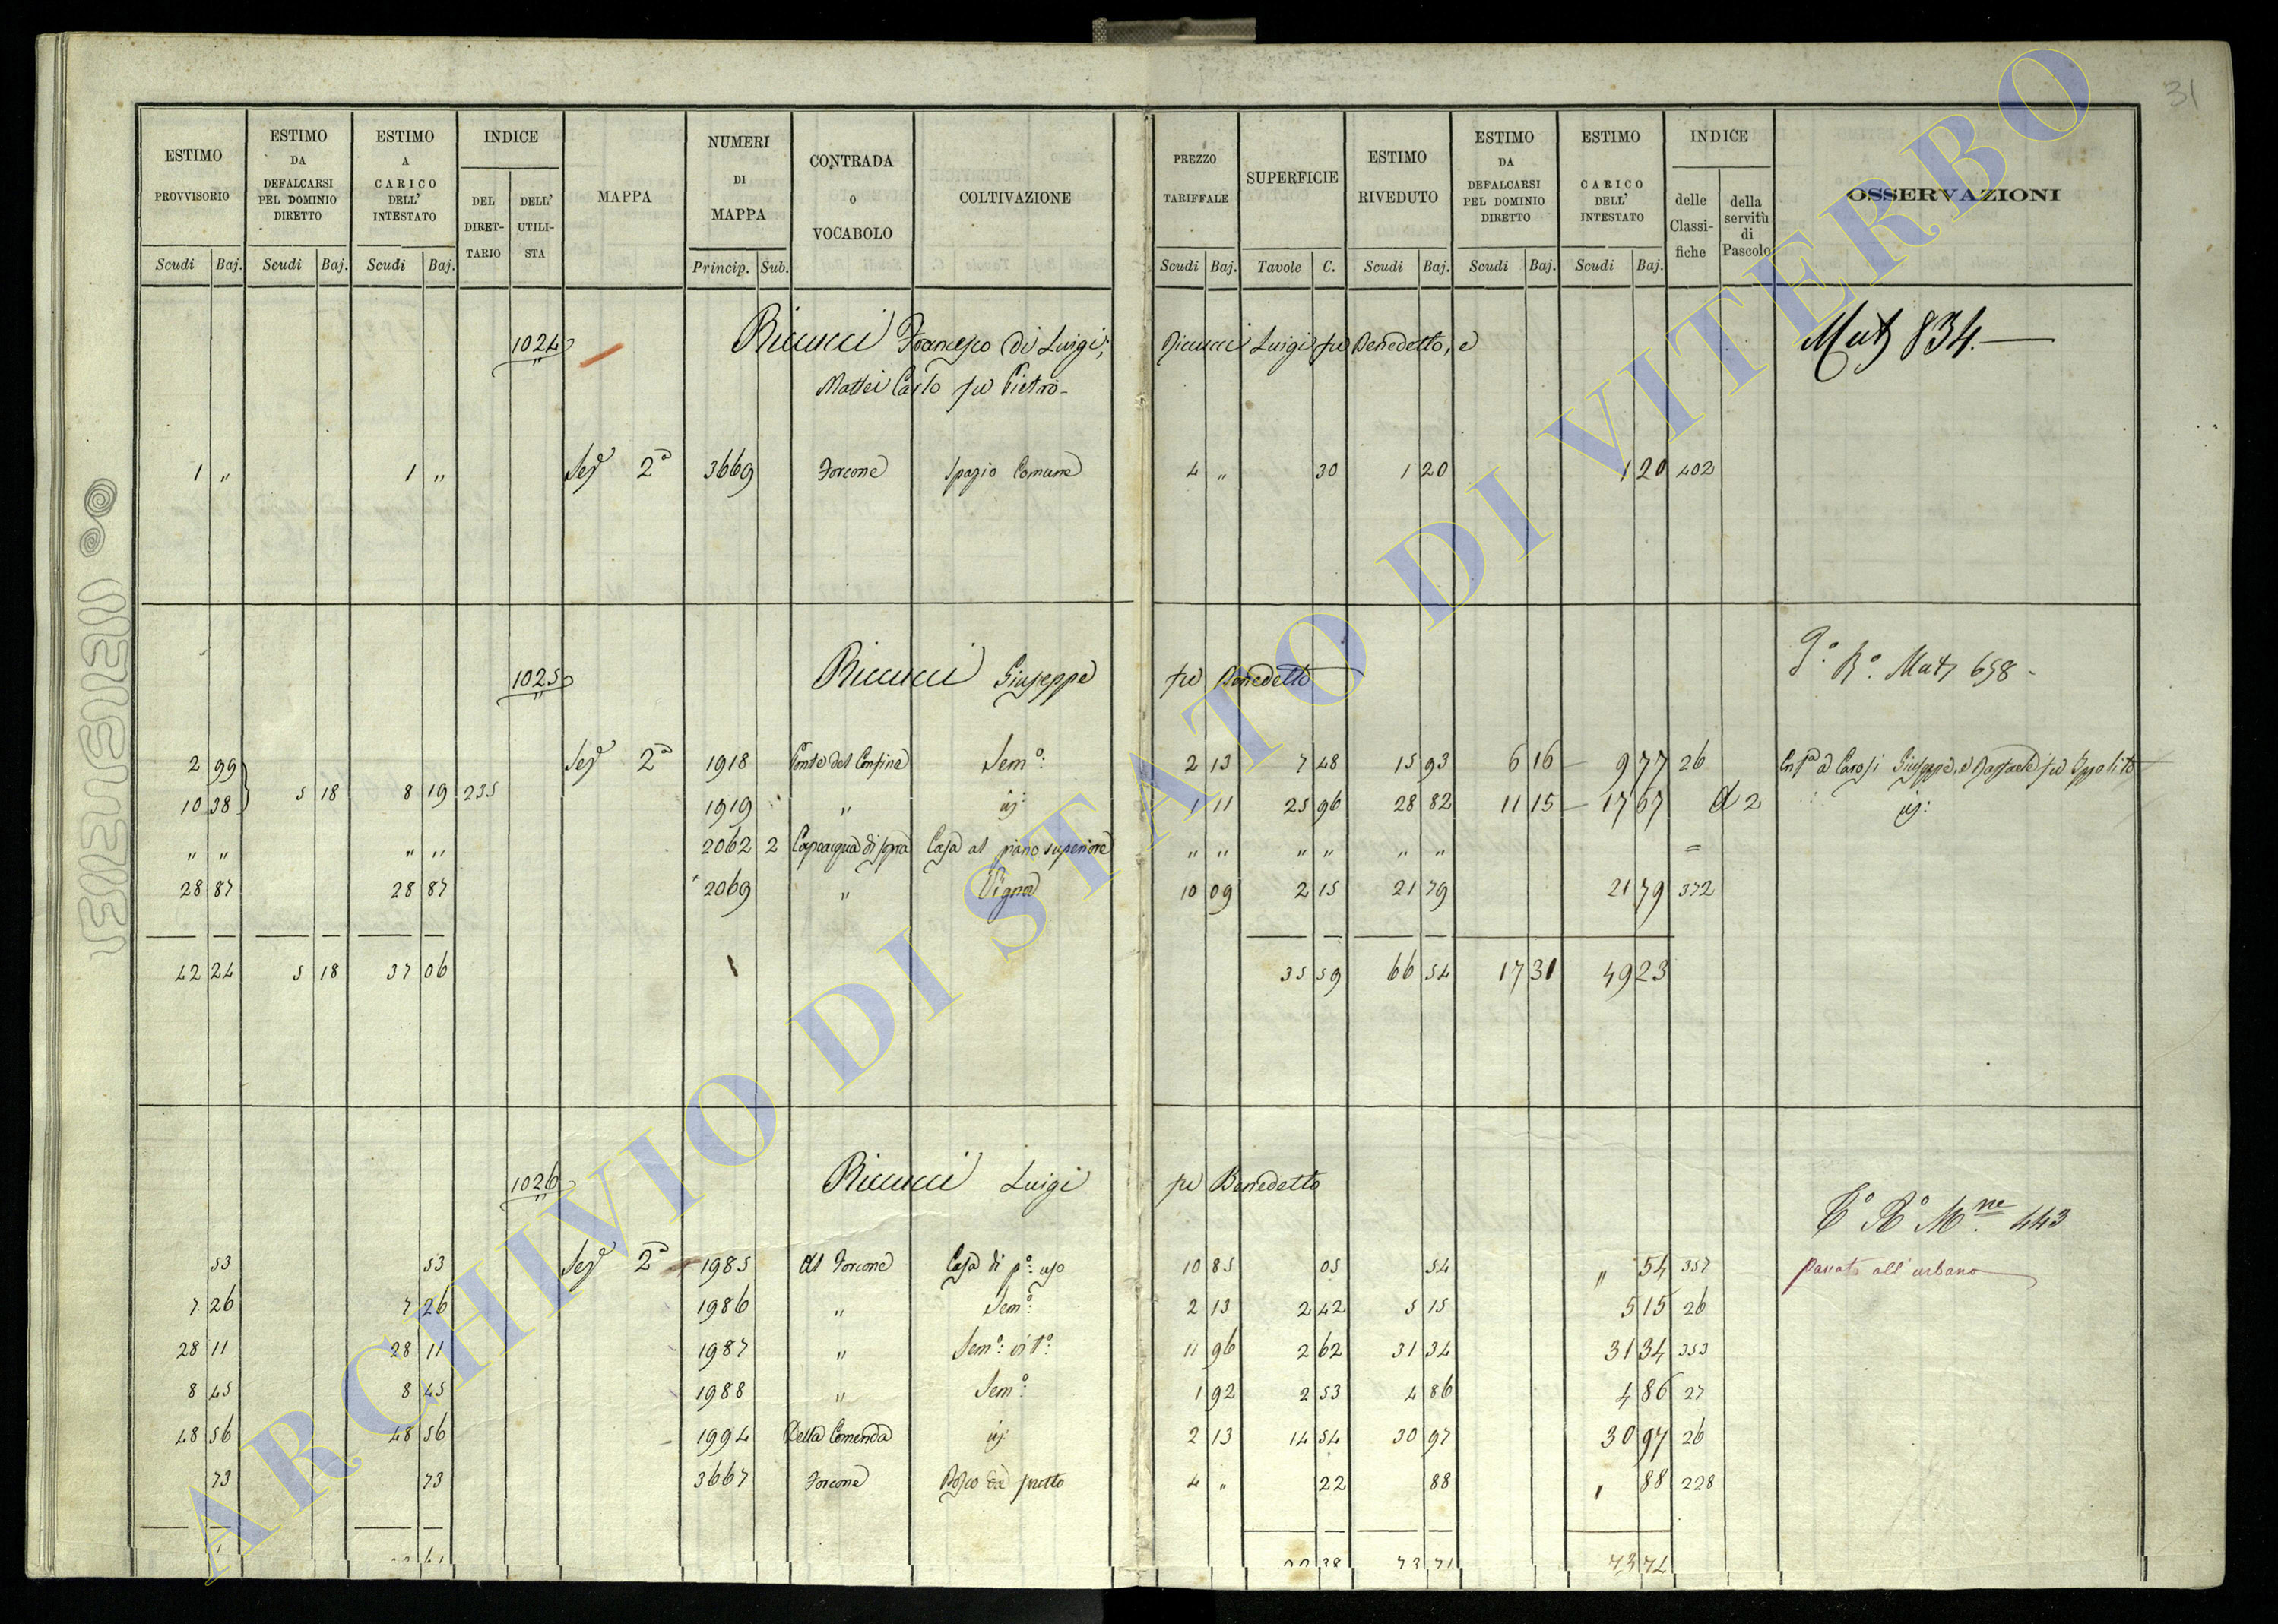 31
ESTIMO PROVVISORIO
ESTIMO DA DEFALCARSI PEL DOMINIO DIRETTO
ESTIMO A CARICO DELL' INTESTATO
INDICE
DEL DIRET-TARIO
DELL' UTILI-STA
MAPPA
NUMERI DI MAPPA
CONTRADA O VOCABOLO
COLTIVAZIONE
PREZZO TARIFFALE
SUPERFICIE
ESTIMO RIVEDUTO
ESTIMO DA DEFALCARSI PEL DOMINIO DIRETTO
ESTIMO A CARICO DELL' INTESTATO
INDICE
delle Classi-fiche
della servitù di Pascolo
OSSERVAZIONI
Scudi Baj. Scudi Baj. Scudi Baj. Princip. Sub. Scudi Baj. Tavole C. Scudi Baj. Scudi Baj. Scudi Baj.
1024 Ricucci Francesco di Luigi; Ricucci Luigi fu Benedetto, e Mut 834.
Mattei Carlo fu Pietro
1 „ 1 „ Sez 2ª 3669 Forcone Spazio Comune 4 „ 30 1 20 1 20 402
1025 Ricucci Giuseppe fu Benedetto Mut 658
2 99 Sez 2ª 1918 Ponte del Confine Sem.º 2 13 7 48 15 93 6 16 9 77 26 Enfª a Carosi Giuseppe, e Raffaele fu Ippolito
10 38 5 18 8 19 235 1919 „ id: 1 11 25 96 28 82 11 15 17 67 A 2 id:
„ „ „ „ 2062 2 Capoacqua di sopra Casa al piano superiore „ „ „ „ „ „ =
28 87 28 87 2069 „ Vigna 10 09 2 15 21 79 21 79 372
42 24 5 18 37 06 35 59 66 54 17 31 49 23
1026 Ricucci Luigi fu Benedetto Tº Rº Mne. 443
53 53 Sez 2ª 1985 Al Forcone Casa di pº: uso 10 85 05 54 „ 54 357 Passato all'urbano
7 26 7 26 1986 „ Sem.º 2 13 2 42 5 15 5 15 26
28 11 28 11 1987 „ Sem.º vitº: 11 96 2 62 31 34 31 34 353
8 45 8 45 1988 „ Sem.º 1 92 2 53 4 86 4 86 27
48 56 48 56 1994 Della Comenda id: 2 13 14 54 30 97 30 97 26
73 73 3667 Forcone Bosco da frutto 4 „ 22 88 „ 88 228
38 73 71 73 74
ARCHIVIO DI STATO DI VITERBO